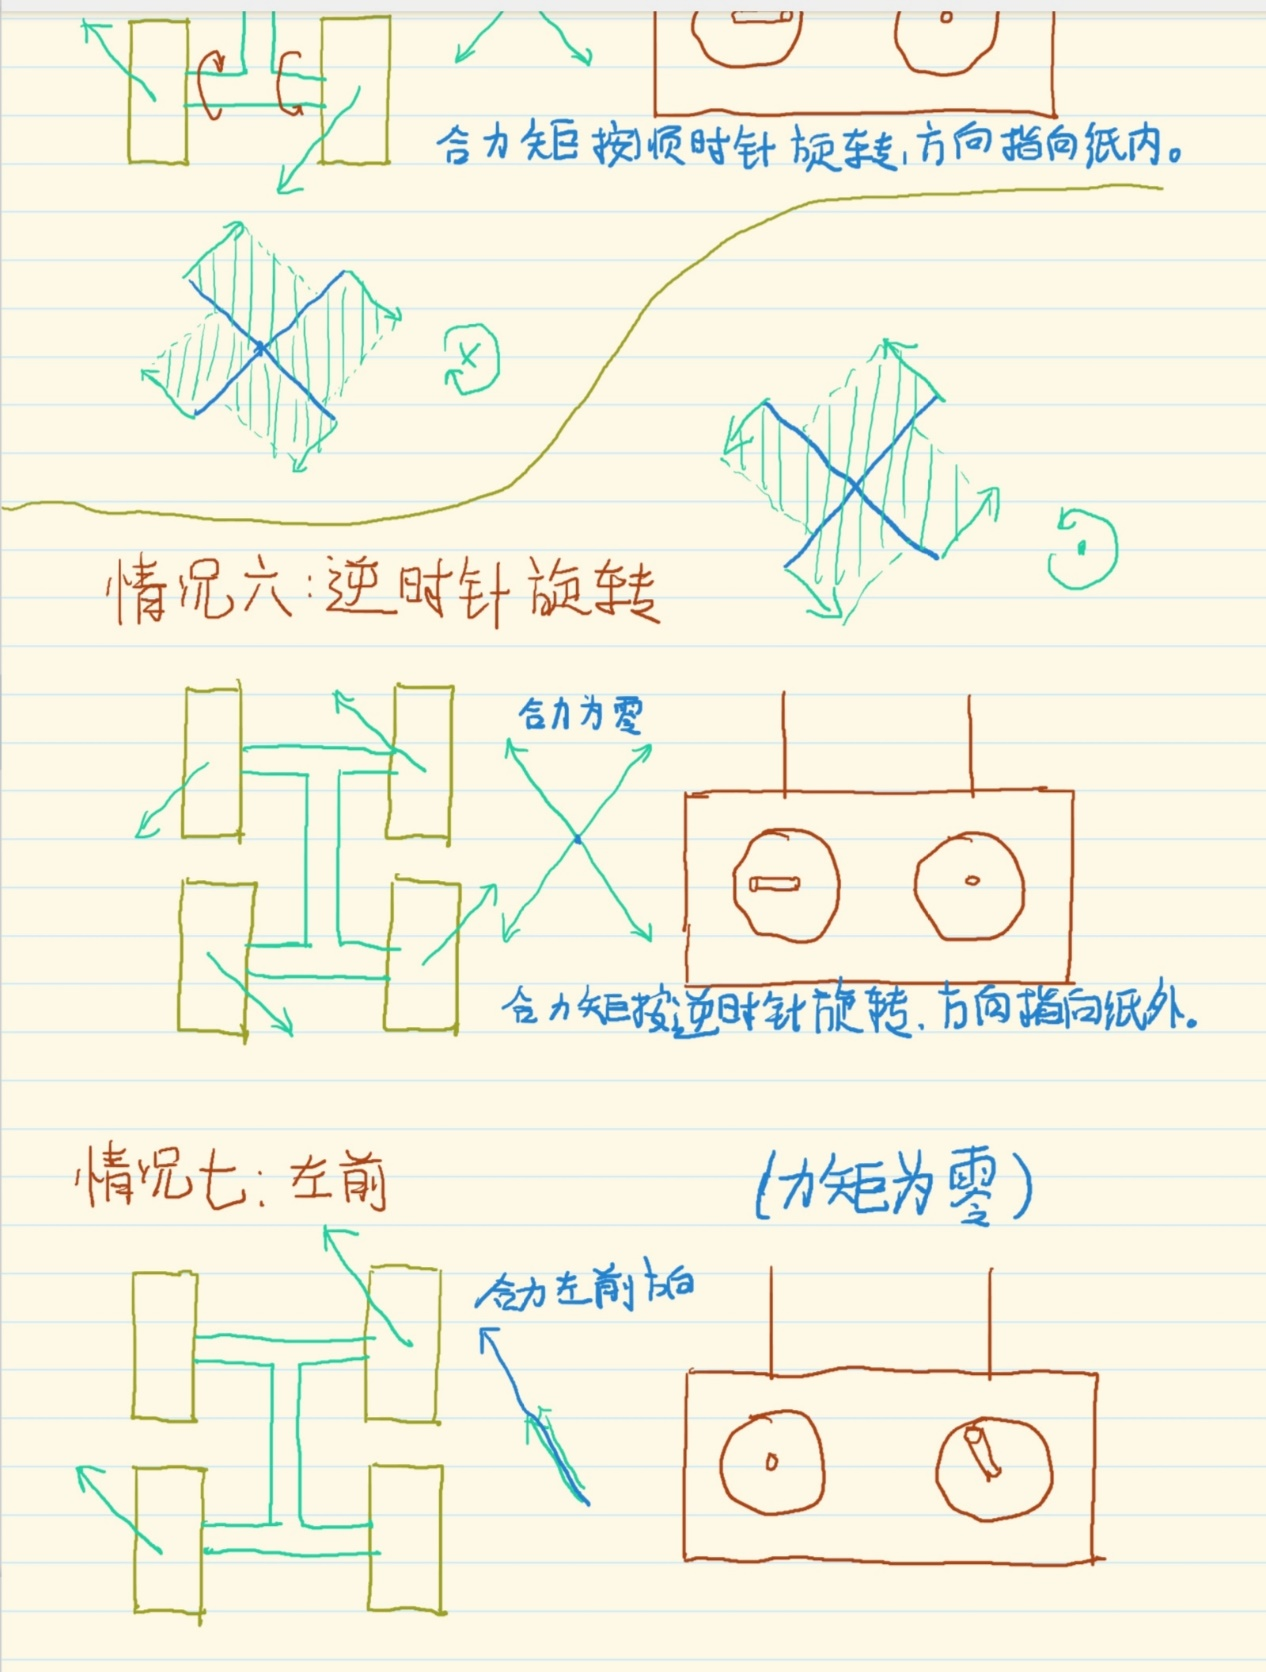 合力矩按顺时针旋转,方向指向纸内。
情况六:逆时针旋转
合力为零
合力矩按逆时针旋转,方向指向纸外。
情况七:左前
(力矩为零)
合力左前方向